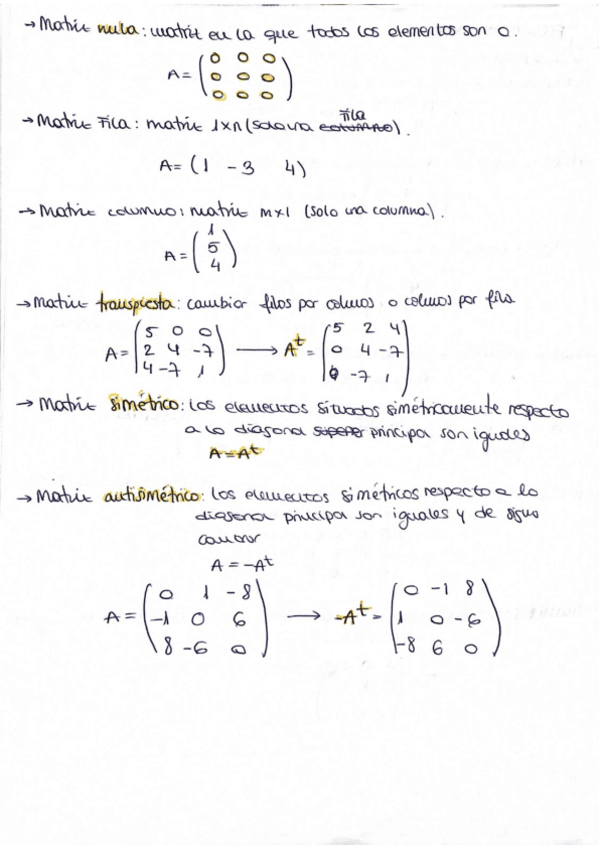 → Matriz nula: matriz en la que todos los elementos son 0.
A = (0 0 0
0 0 0
0 0 0)
→ Matriz Fila: matriz 1xn (solo una columna Fila).
A = (1 -3 4)
→ Matriz columna: matriz mx1 (solo una columna).
A = (1
5
4)
→ Matriz transpuesta: cambiar filas por columnas o columnas por fila
A = (5 0 0 → Aᵗ = (5 2 4
2 4 -7 0 4 -7
4 -7 1) 0 -7 1)
→ Matriz simétrica: los elementos situados simétricamente respecto
a la diagonal principal son iguales
A = Aᵗ
→ Matriz antisimétrica: los elementos simétricos respecto a la
diagonal principal son iguales y de signo
A = -Aᵗ
A = (0 1 -8 → -Aᵗ = (0 -1 8
-1 0 6 1 0 -6
8 -6 0) -8 6 0)